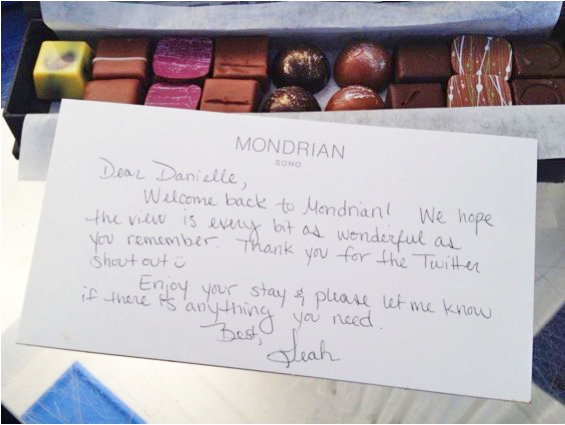 MONDRIAN
SOHO
Dear Danielle,
Welcome back to Mondrian! We hope
the view is every bit as wonderful as
you remember. Thank you for the Twitter
shout out :)
Enjoy your stay & please let me know
if there is anything you need.
Best,
Leah